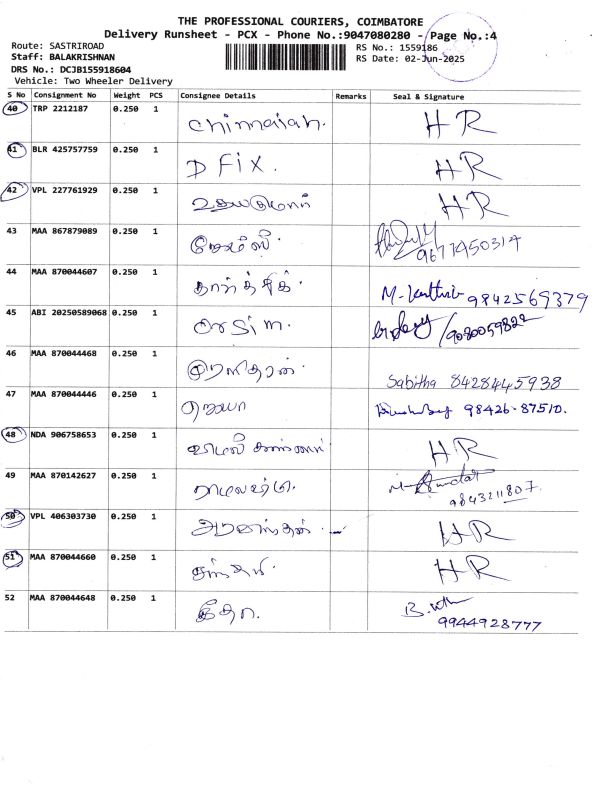 THE PROFESSIONAL COURIERS, COIMBATORE
Delivery Runsheet - PCX - Phone No.:9047080280 - Page No.:4
Route: SASTRIROAD
RS No.: 1559186
Staff: BALAKRISHNAN
RS Date: 02-Jun-2025
DRS No.: DCJB155918604
Vehicle: Two Wheeler Delivery
S No Consignment No Weight PCS Consignee Details Remarks Seal & Signature
40 TRP 2212187 0.250 1 Chinnaiah. HR
41 BLR 425757759 0.250 1 D FIX. HR
42 VPL 227761929 0.250 1 உதயகுமார் HR
43 MAA 867879089 0.250 1 9677450317
44 MAA 870044607 0.250 1 கார்த்திக். M. Karthik 9842569379
45 ABI 20250589068 0.250 1 Orsim. 9080059822
46 MAA 870044468 0.250 1 Sabitha 8428445938
47 MAA 870044446 0.250 1 ஜெயா 98426-87510.
48 NDA 906758653 0.250 1 HR
49 MAA 870142627 0.250 1 9843211807.
50 VPL 406303730 0.250 1 HR
51 MAA 870044660 0.250 1 HR
52 MAA 870044648 0.250 1 கீதா. 9944928777